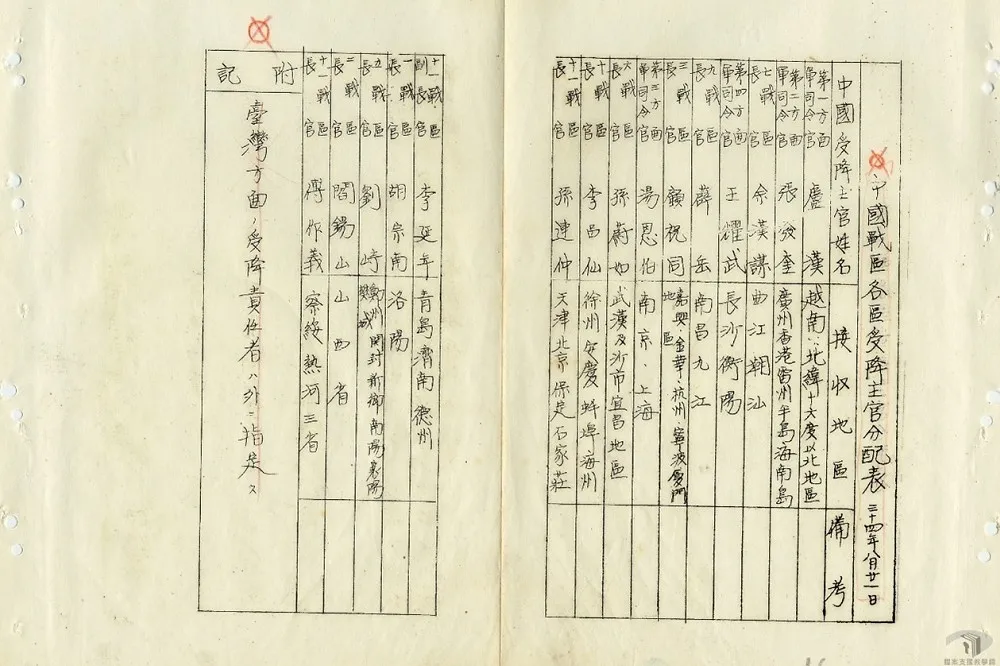 中國戰區各區受降主官分配表 三十四年八月廿一日
中國受降主官姓名 接收地區 備考
第一方面軍司令官 盧漢 越南(北緯十六度以北地區
第二方面軍司令官 張發奎 廣州香港雷州半島海南島
七戰區長官 余漢謀 曲江潮汕
第四方面軍司令官 王耀武 長沙衡陽
九戰區長官 薛岳 南昌九江
三戰區長官 顧祝同 嘉興、金華、杭州、寧波廈門地區
第三方面軍司令官 湯恩伯 南京、上海
六戰區長官 孫蔚如 武漢及沙市宜昌地區
十戰區長官 李品仙 徐州安慶蚌埠海州
十一戰區長官 孫連仲 天津北京保定石家莊
十一戰區副長官 李延年 青島濟南德州
一戰區長官 胡宗南 洛陽
五戰區長官 劉峙 鄭州開封新鄉南陽襄陽樊城
二戰區長官 閻錫山 山西省
十二戰區長官 傅作義 察綏熱河三省
附記
臺灣方面ノ受降責任者ハ外ニ指定ス
檔案支援教學網